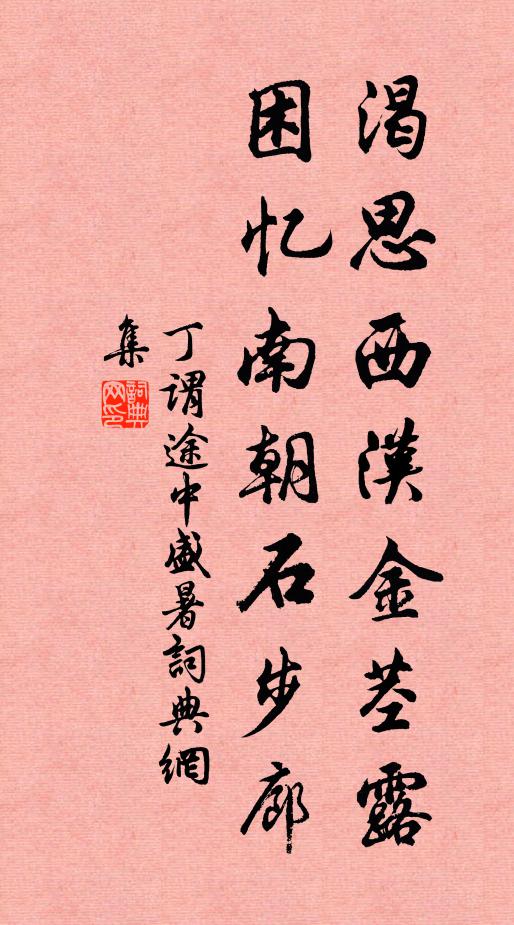 渴思西漢金茎露
困忆南朝石步廊
丁謂途中盛暑詞典網
集
詞典網印